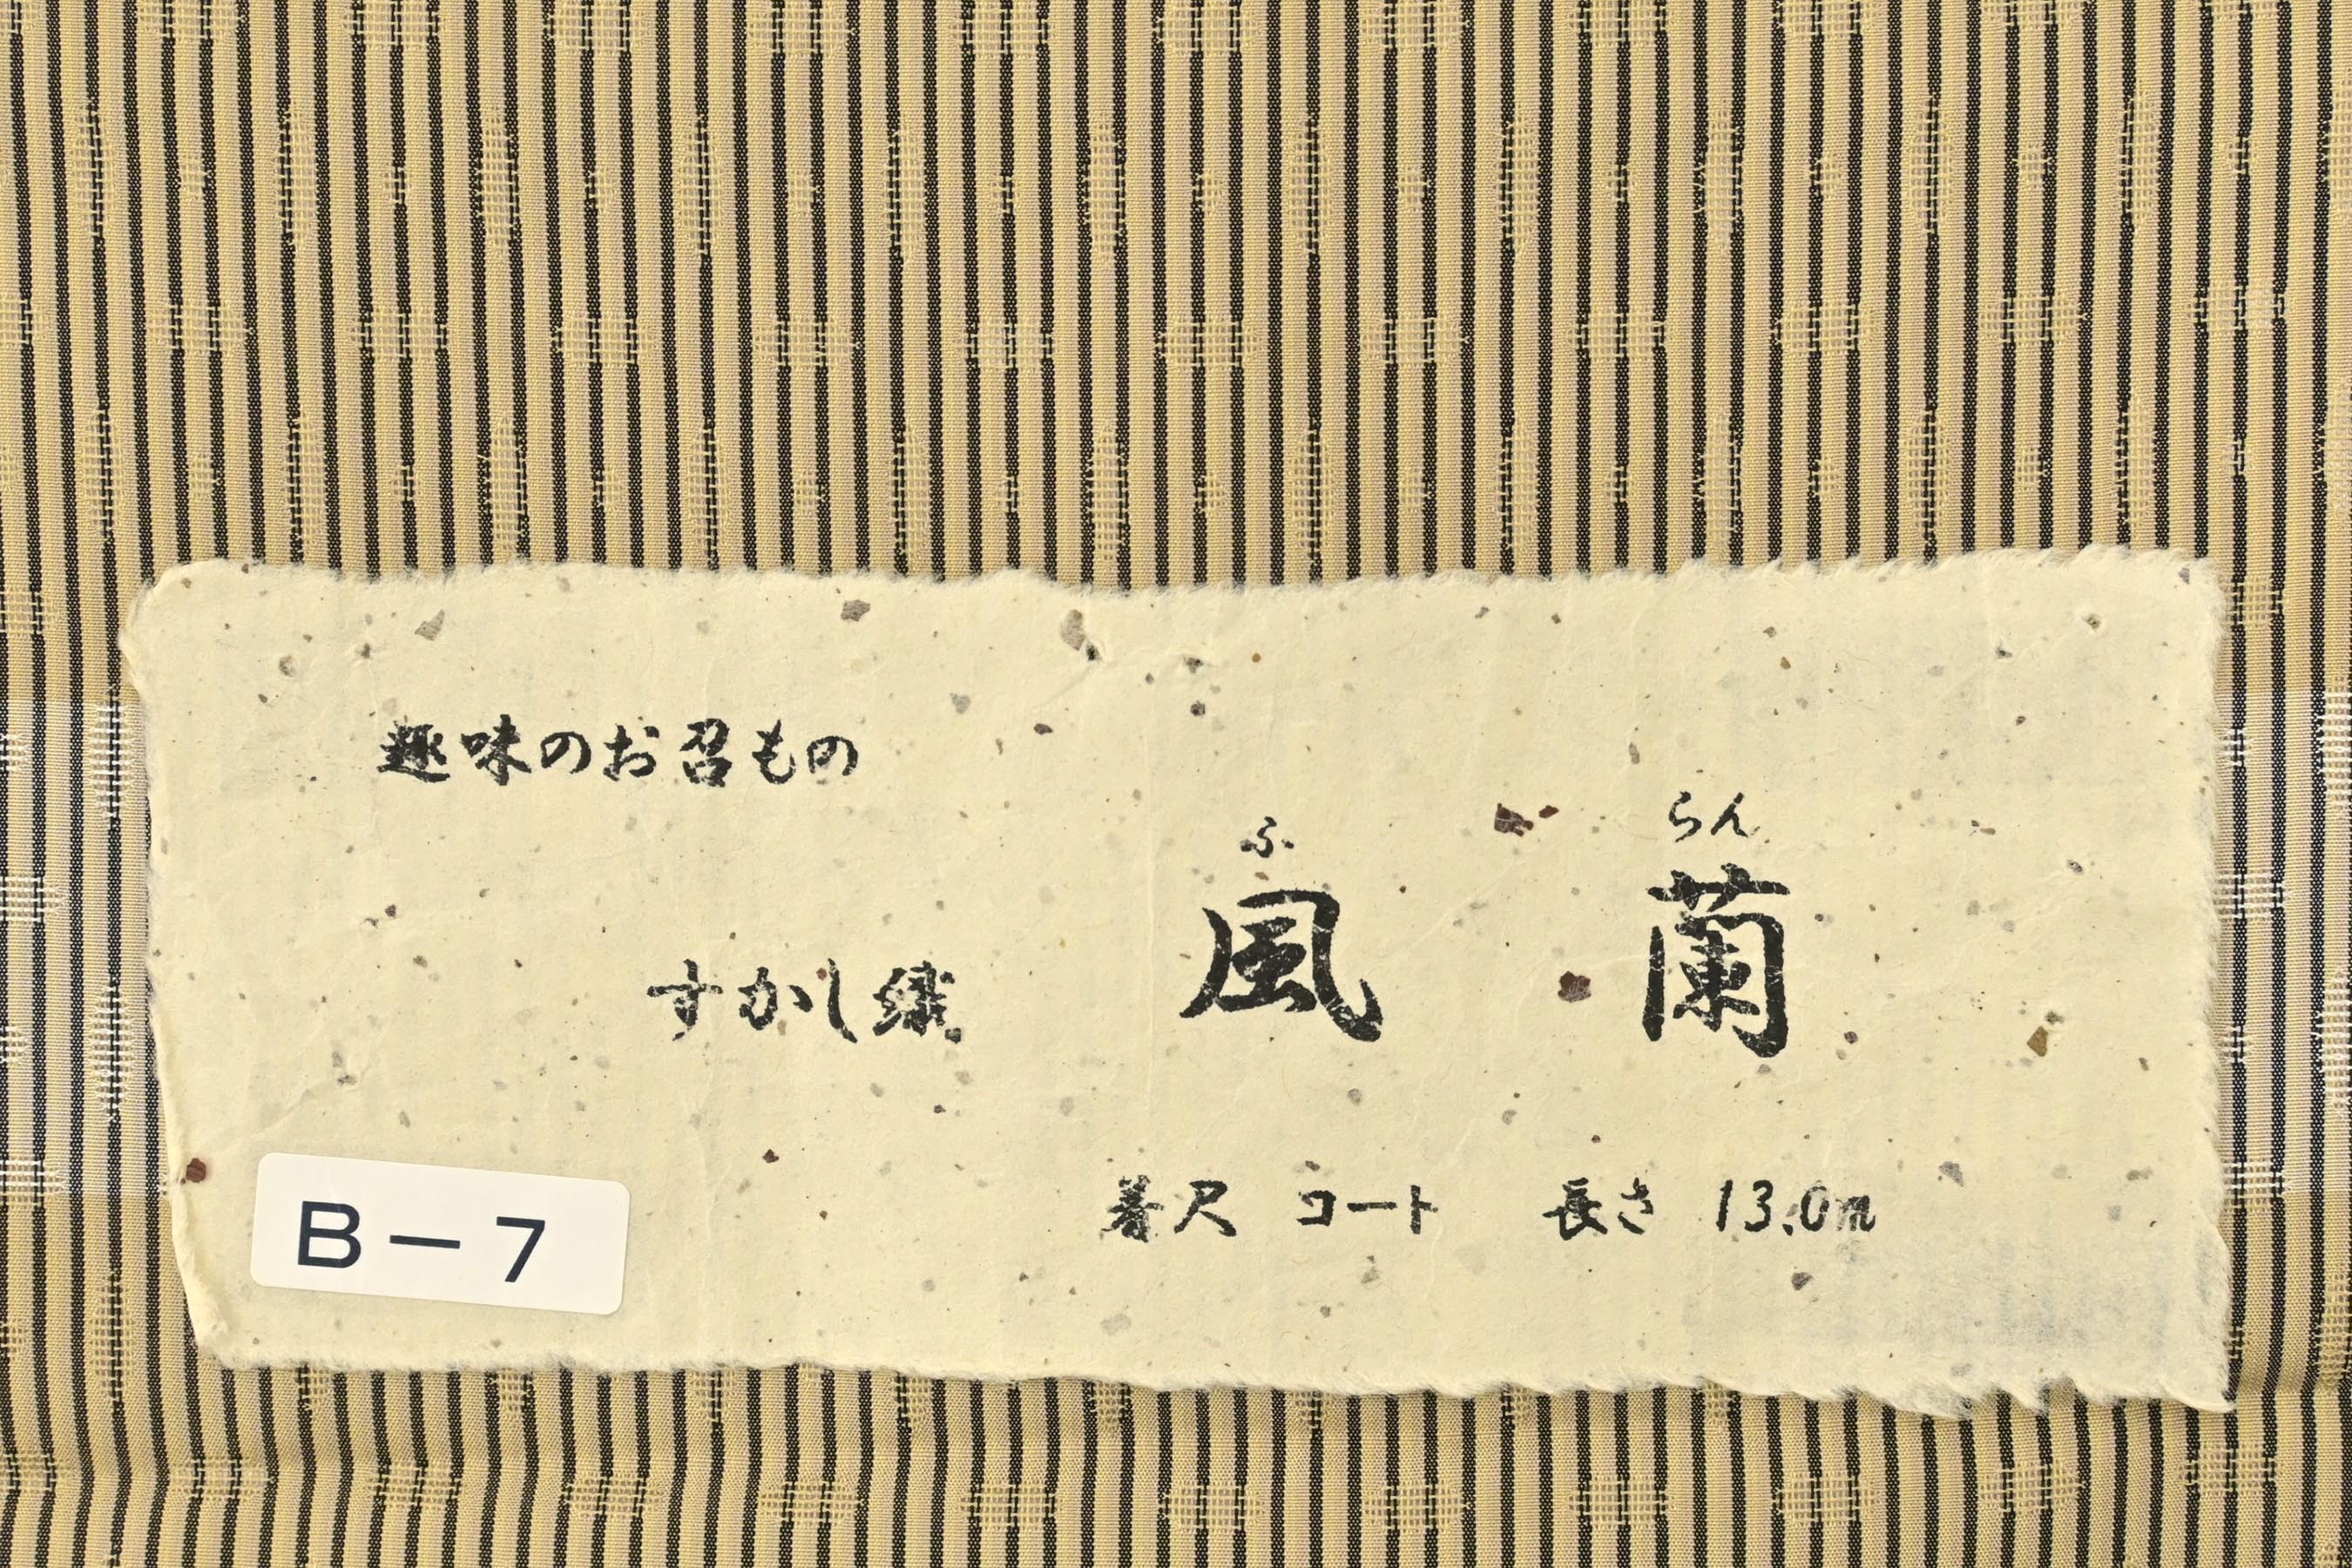 趣味のお召もの
ふ らん
すかし織 風 蘭
着尺 コート 長さ 13.0m
B-7